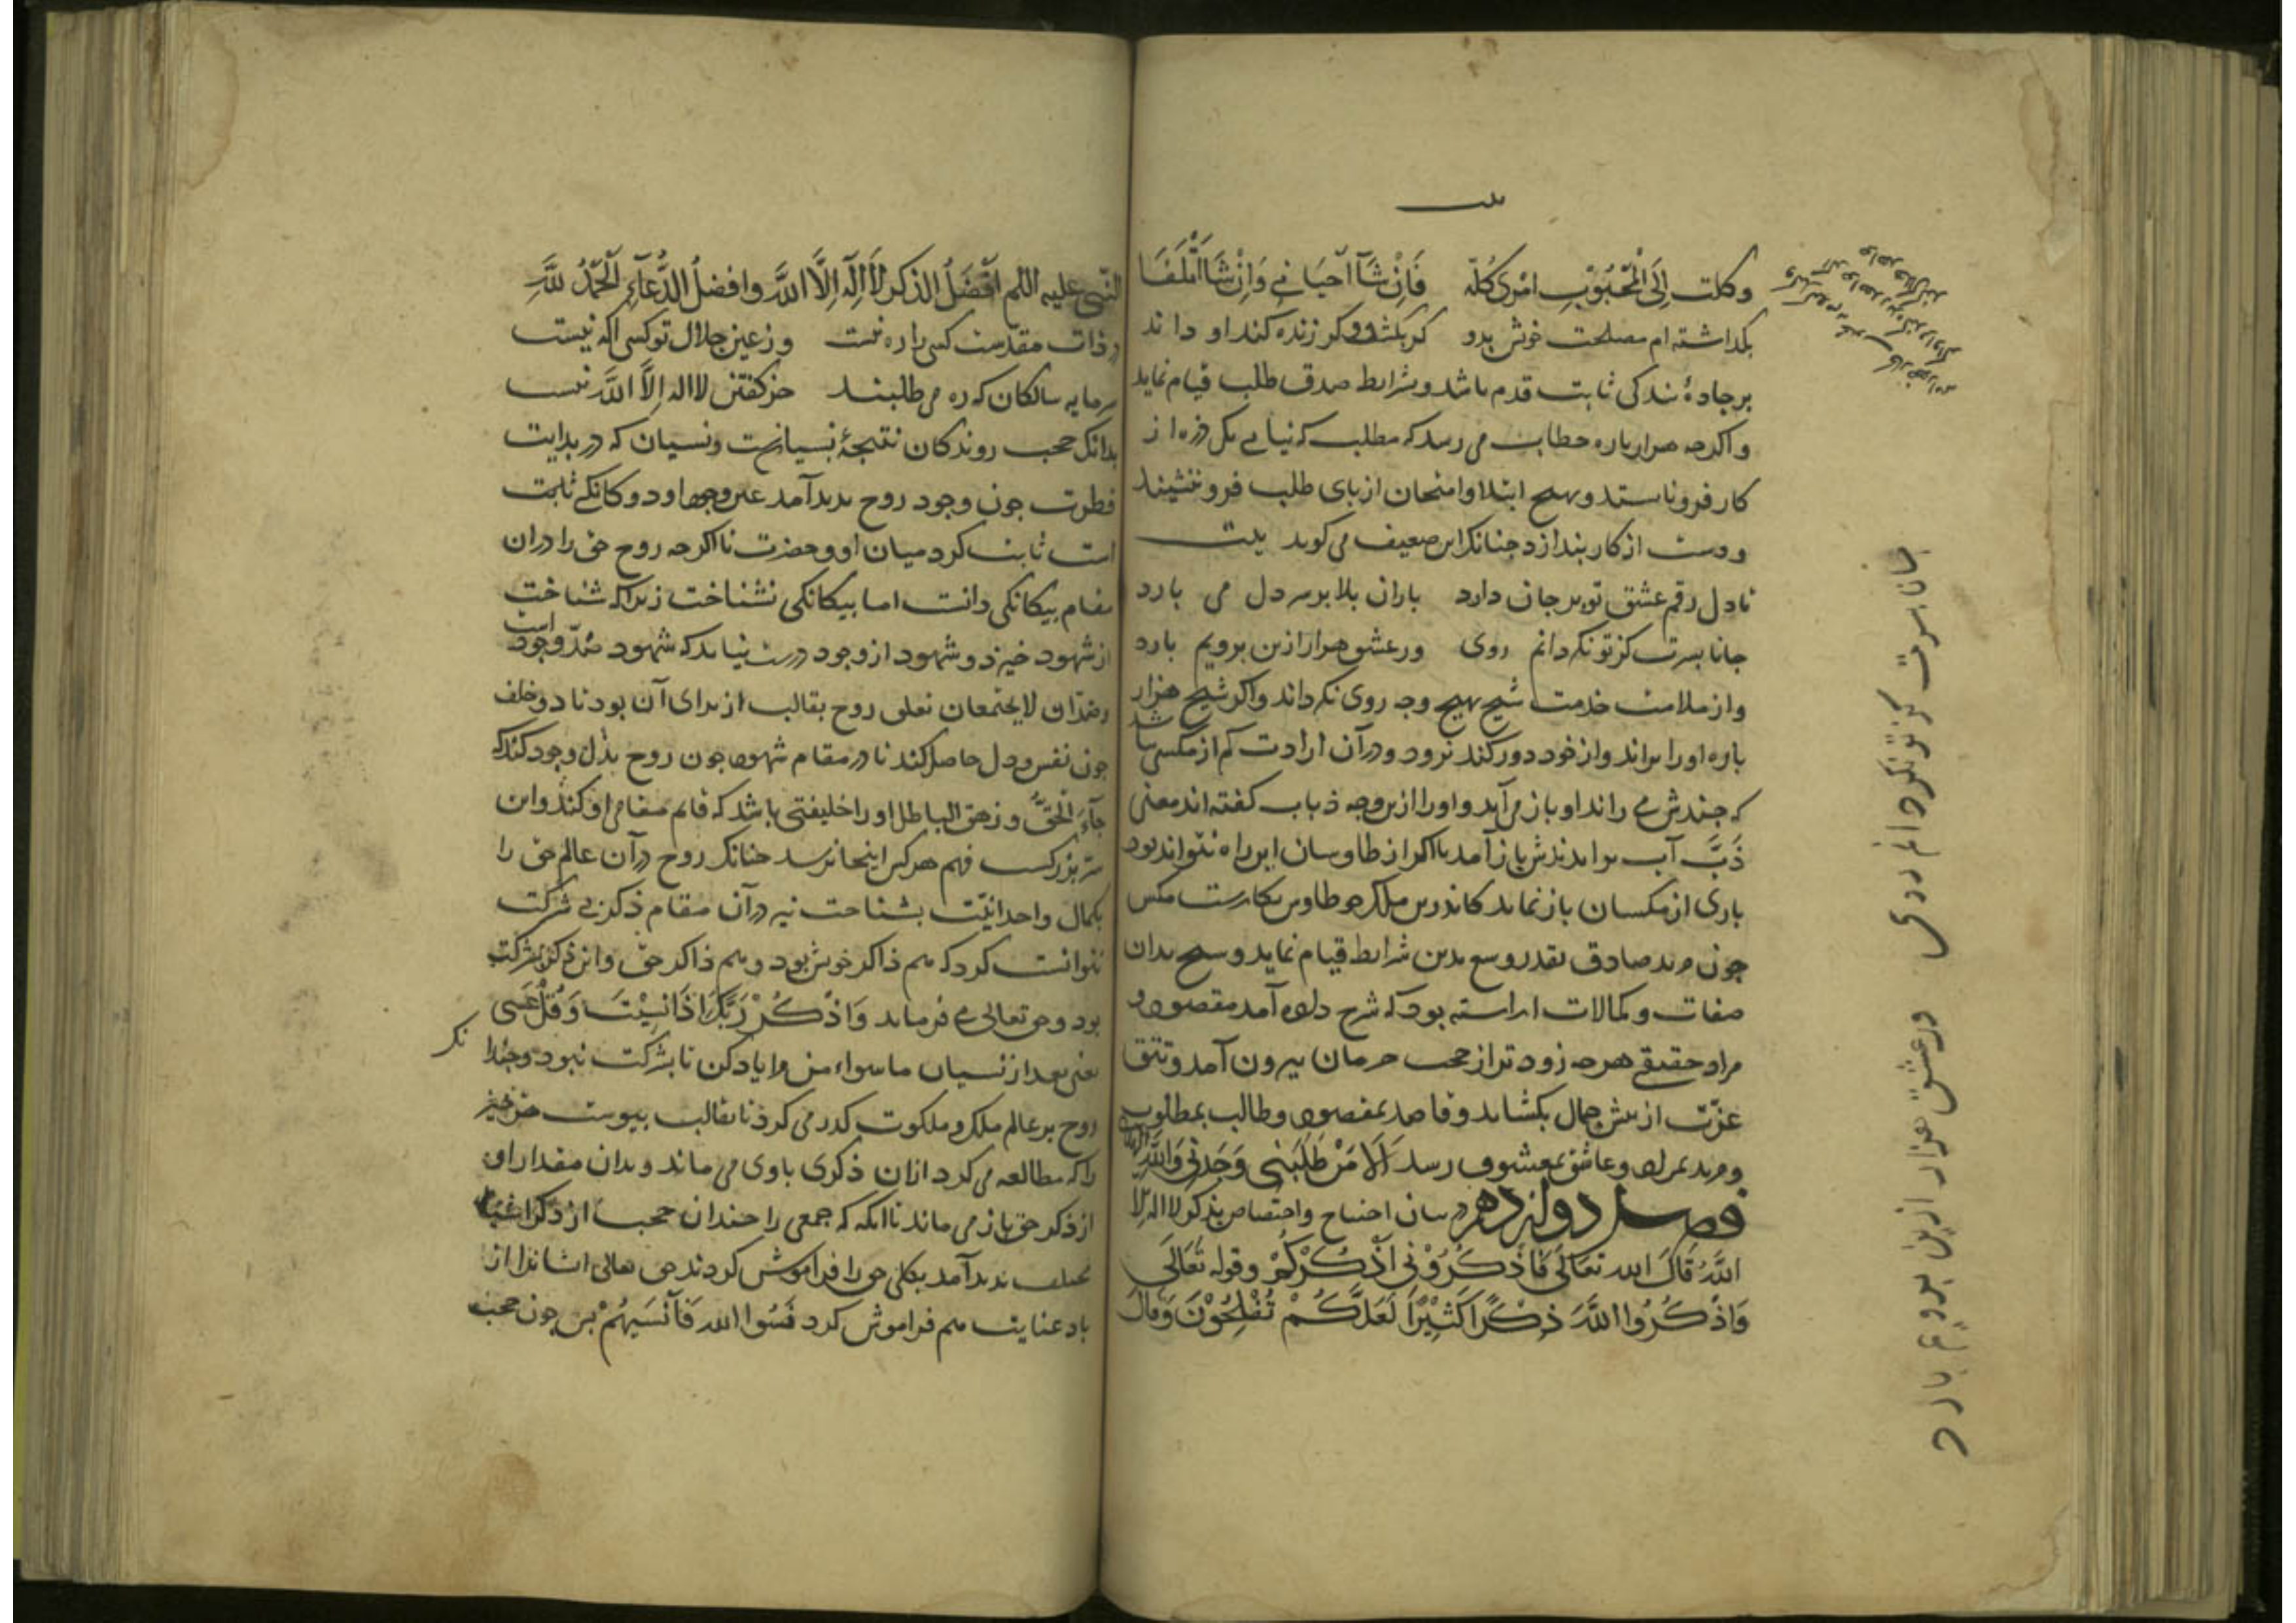 وکلت اِلَی الْمَحْبُوْبِ امْری کُلّه فَاِنْ شَآ اَحیَانی وَاِنْ شَا اَتْلَفَا
بکداشته ام مصلحت خوش بدو کر بکشد و کر زنده کند او داند
بر جادهٔ بندکی ثابت قدم باشد و شرایط صدق طلب قیام نماید
و اکرجه هزار باره خطاب می رسد که مطلب که نیابی یک ذره از
کار فرو نایستد و بهیچ ابتلا و امتحان از بای طلب فرو ننشیند
و دست از کار بندازد جنانک این ضعیف می کوید بیت
تا دل رقم عشق تو بر جان دارد باران بلا بر سر دل می بارد
جانا بسرت کز تو نکردانم روی ور عشق هزار ازین برویم بارد
و از ملامت خدمت شیخ بهیچ وجه روی نکرداند و اکر شیخ هزار
باره او را براند و از خود دور کند نرود و در آن ارادت کم از مکسی نباشد
که جندش می راند او باز می آید و او را ازین وجه ذباب کفته اند معنی
ذَبَّ آب براندندش باز آمد تا اکر از طاوسان این راه نتواند بود
باری از مکسان باز نماند کاندرین ملک جو طاوس بکارست مکس
جون مرید صادق بقدر وسع بدین شرایط قیام نماید و شیخ بدان
صفات و کمالات اراسته بود که شرح داده آمد مقصود و
مراد حقیقی هرجه زودتر از حجب حرمان بیرون آمد و تتق
عزّت از بیش جمال بکشاید و قاصد بمقصود و طالب بمطلوب
و مرید بمراد و عاشق بمعشوق رسد اَلَا مَنْ طَلَبَنی وَجَدَنی وَاللَّه
فصل دوازدهم در بیان احتیاج و اختصاص بذکر لا اله الّا
اللَّهُ قَالَ الله تعَالَی فَاذْکُرُوْنی اَذْکُرْکُمْ وقوله تُعَالَی
وَاذْکُرُوا اللَّهَ ذِکْرًا کَثِیْرًا لَعَلَّکُمْ تُفْلِحُوْنَ وَقالَ
جانا بسرت کز تو نکردانم روی ور عشق هزار ازین برویم بارد
النّبی علیه السلم اَفْضَلُ الذکر لَا اِلٰهَ اِلَّا اللَّه وافضلُ الدُّعَآءِ اَلْحَمْدُ للَّهِ
در ذات مقدّست کسی را ره نیست وز عین جلال تو کسی اکه نیست
سرمایه سالکان که ره می طلبند جز کفتن لا اله اِلاَّ اللَّه نیست
بدانک حجب روندکان نتیجهٔ نسیانست و نسیان که در بدایت
فطرت جون وجود روح بدید آمد عین وجود او دوکانکی ثابت
است ثابت کرد میان او و حضرت تا اکرجه روح حق را در ان
مقام بیکانکی دانست اما بیکانکی نشناخت زیراکه شناخت
از شهود خیزد و شهود از وجود درست نیاید که شهود ضدّ وجود است
و ضدّان لا یجتمعان تعلق روح بقالب از برای آن بود تا دو خلف
جون نفس و دل حاصل کند تا در مقام شهود جون روح بذل وجود کند که
جآءَ الْحَقُّ و زهق الباطل او را خلیفتی باشد که قایم مقامی او کند و این
سرّ بزرکست فهم هر کس اینجا نرسد جنانک روح در آن عالم حق را
بکمال واحدانیّت بشناخت نیز در آن مقام ذکر بی شرکت
نتوانست کرد که هم ذاکر خویش بود و هم ذاکر حق و این ذکر بشرکت
بود و حق تعالی می فرماید وَاذْکُرْ رَبَّکَ اِذَا نَسِیْتَ وَقُلْ عَسَی
یعنی بعد از نسیان ما سواء من مرا یاد کن تا بشرکت نبود و جندا
نک
روح بر عالم ملک و ملکوت کذر می کرد تا بقالب بیوست هر جیز
را که مطالعه می کرد از ان ذکری با وی می ماند و بدان مقدار او
از ذکر حق باز می ماند تا انکه که جمعی را جندان حجب از ذکر اشیا
مختلف بدید آمد بکلی حق را فراموش کردند حق تعالی ایشانرا از
یاد عنایت هم فراموش کرد فَنَسُوا الله فَاَنْسَیهُمْ بس جون حجب